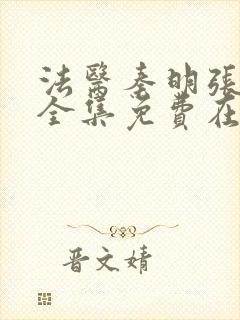 法醫秦明張
全集免費在
晋文婧